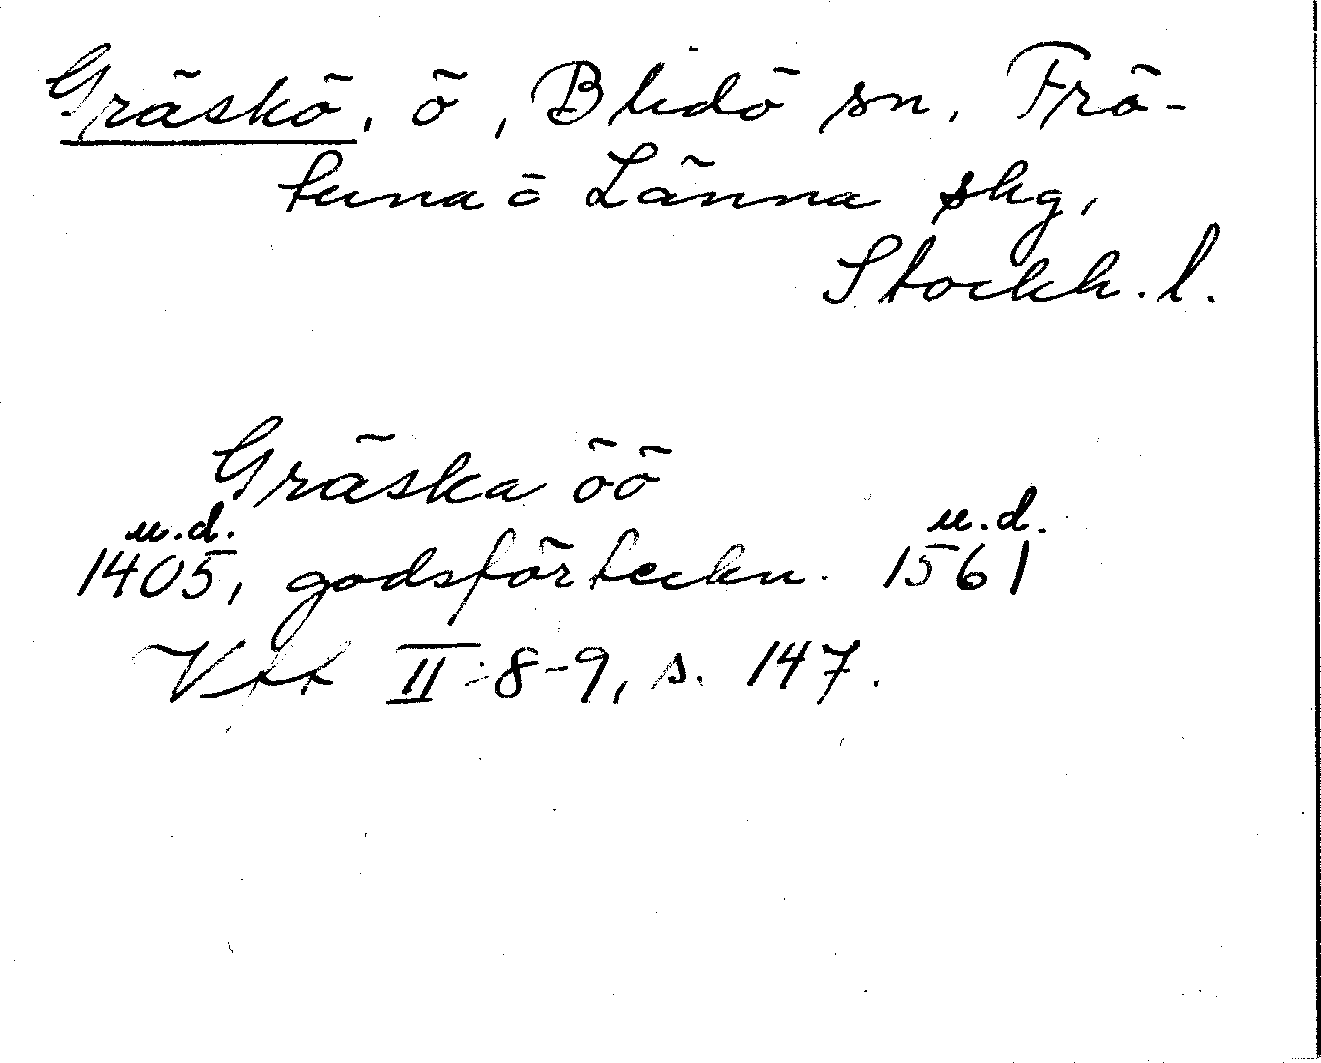 Gräskö, ö, Blidö sn, Frö-
tuna o Länna skg,
Stockh. l.
Gräska öö
u.d. u.d.
1405, godsförteckn. 1561
Vtt II:8-9, s. 147.